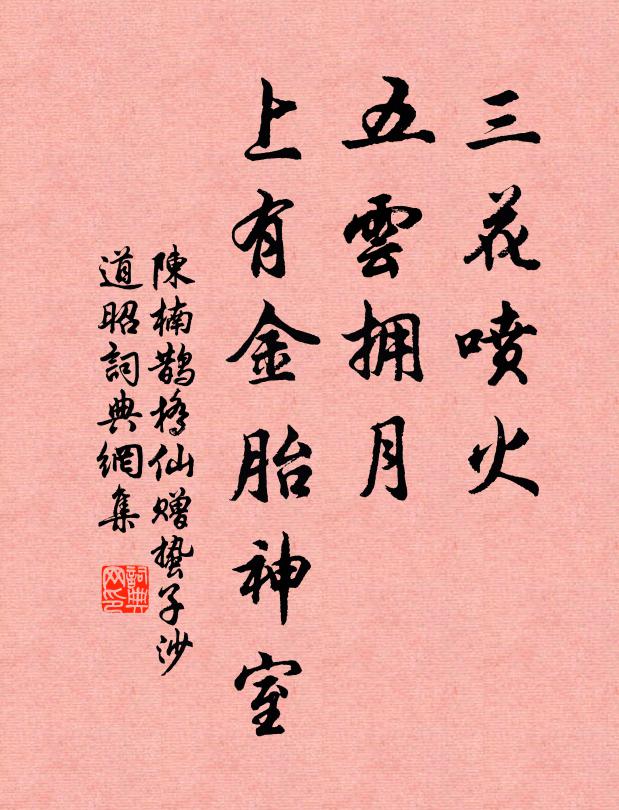 三花噴火
五雲拥月
上有金胎神室
陳楠鵲橋仙赠蛰子沙
道昭詞典網集
詞典网印